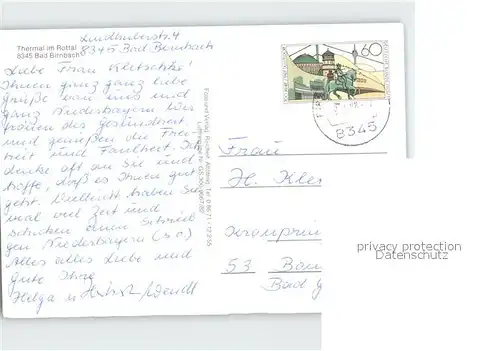 Lindthalerstr. 4
8345 Bad Birnbach
Thermal im Rottal
8345 Bad Birnbach
Liebe Frau Kletschke!
Ihnen ganz ganz liebe
Grüße von uns und
ganz Niederbayern. Wir
frönen der Gesundheit
und genießen die Frei-
heit und Faulheit. Ich
denke oft an Sie und
hoffe, daß es Ihnen gut
geht. Vielleicht haben Sie
mal viel Zeit und
schicken einen
gen Niederbayern (s.o.)
Alles alles Liebe und
Gute Ihre
Helga u. Wendl
60
8345
Frau
H. Kle
Kronprin
53 Bon
Bad G
privacy protection
Datenschutz